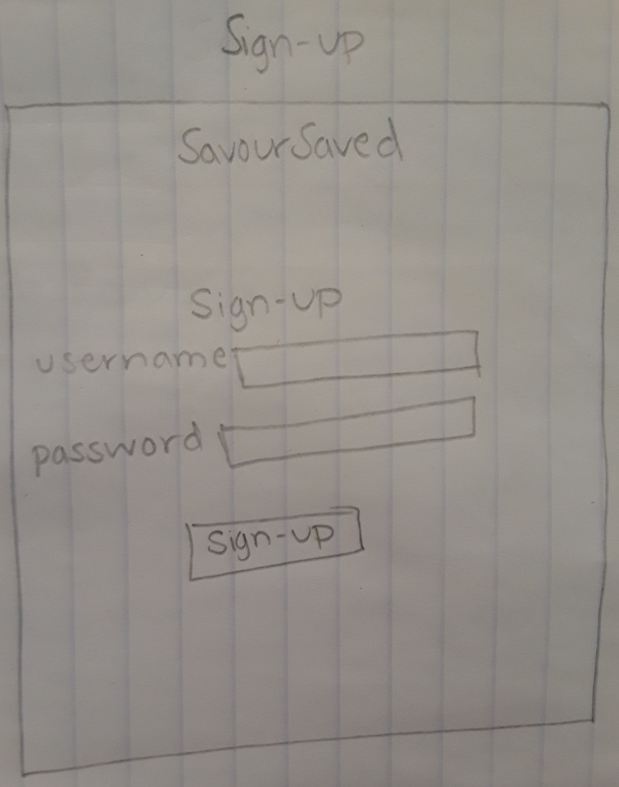 Sign-up
SavourSaved
Sign-up
username
password
Sign-up